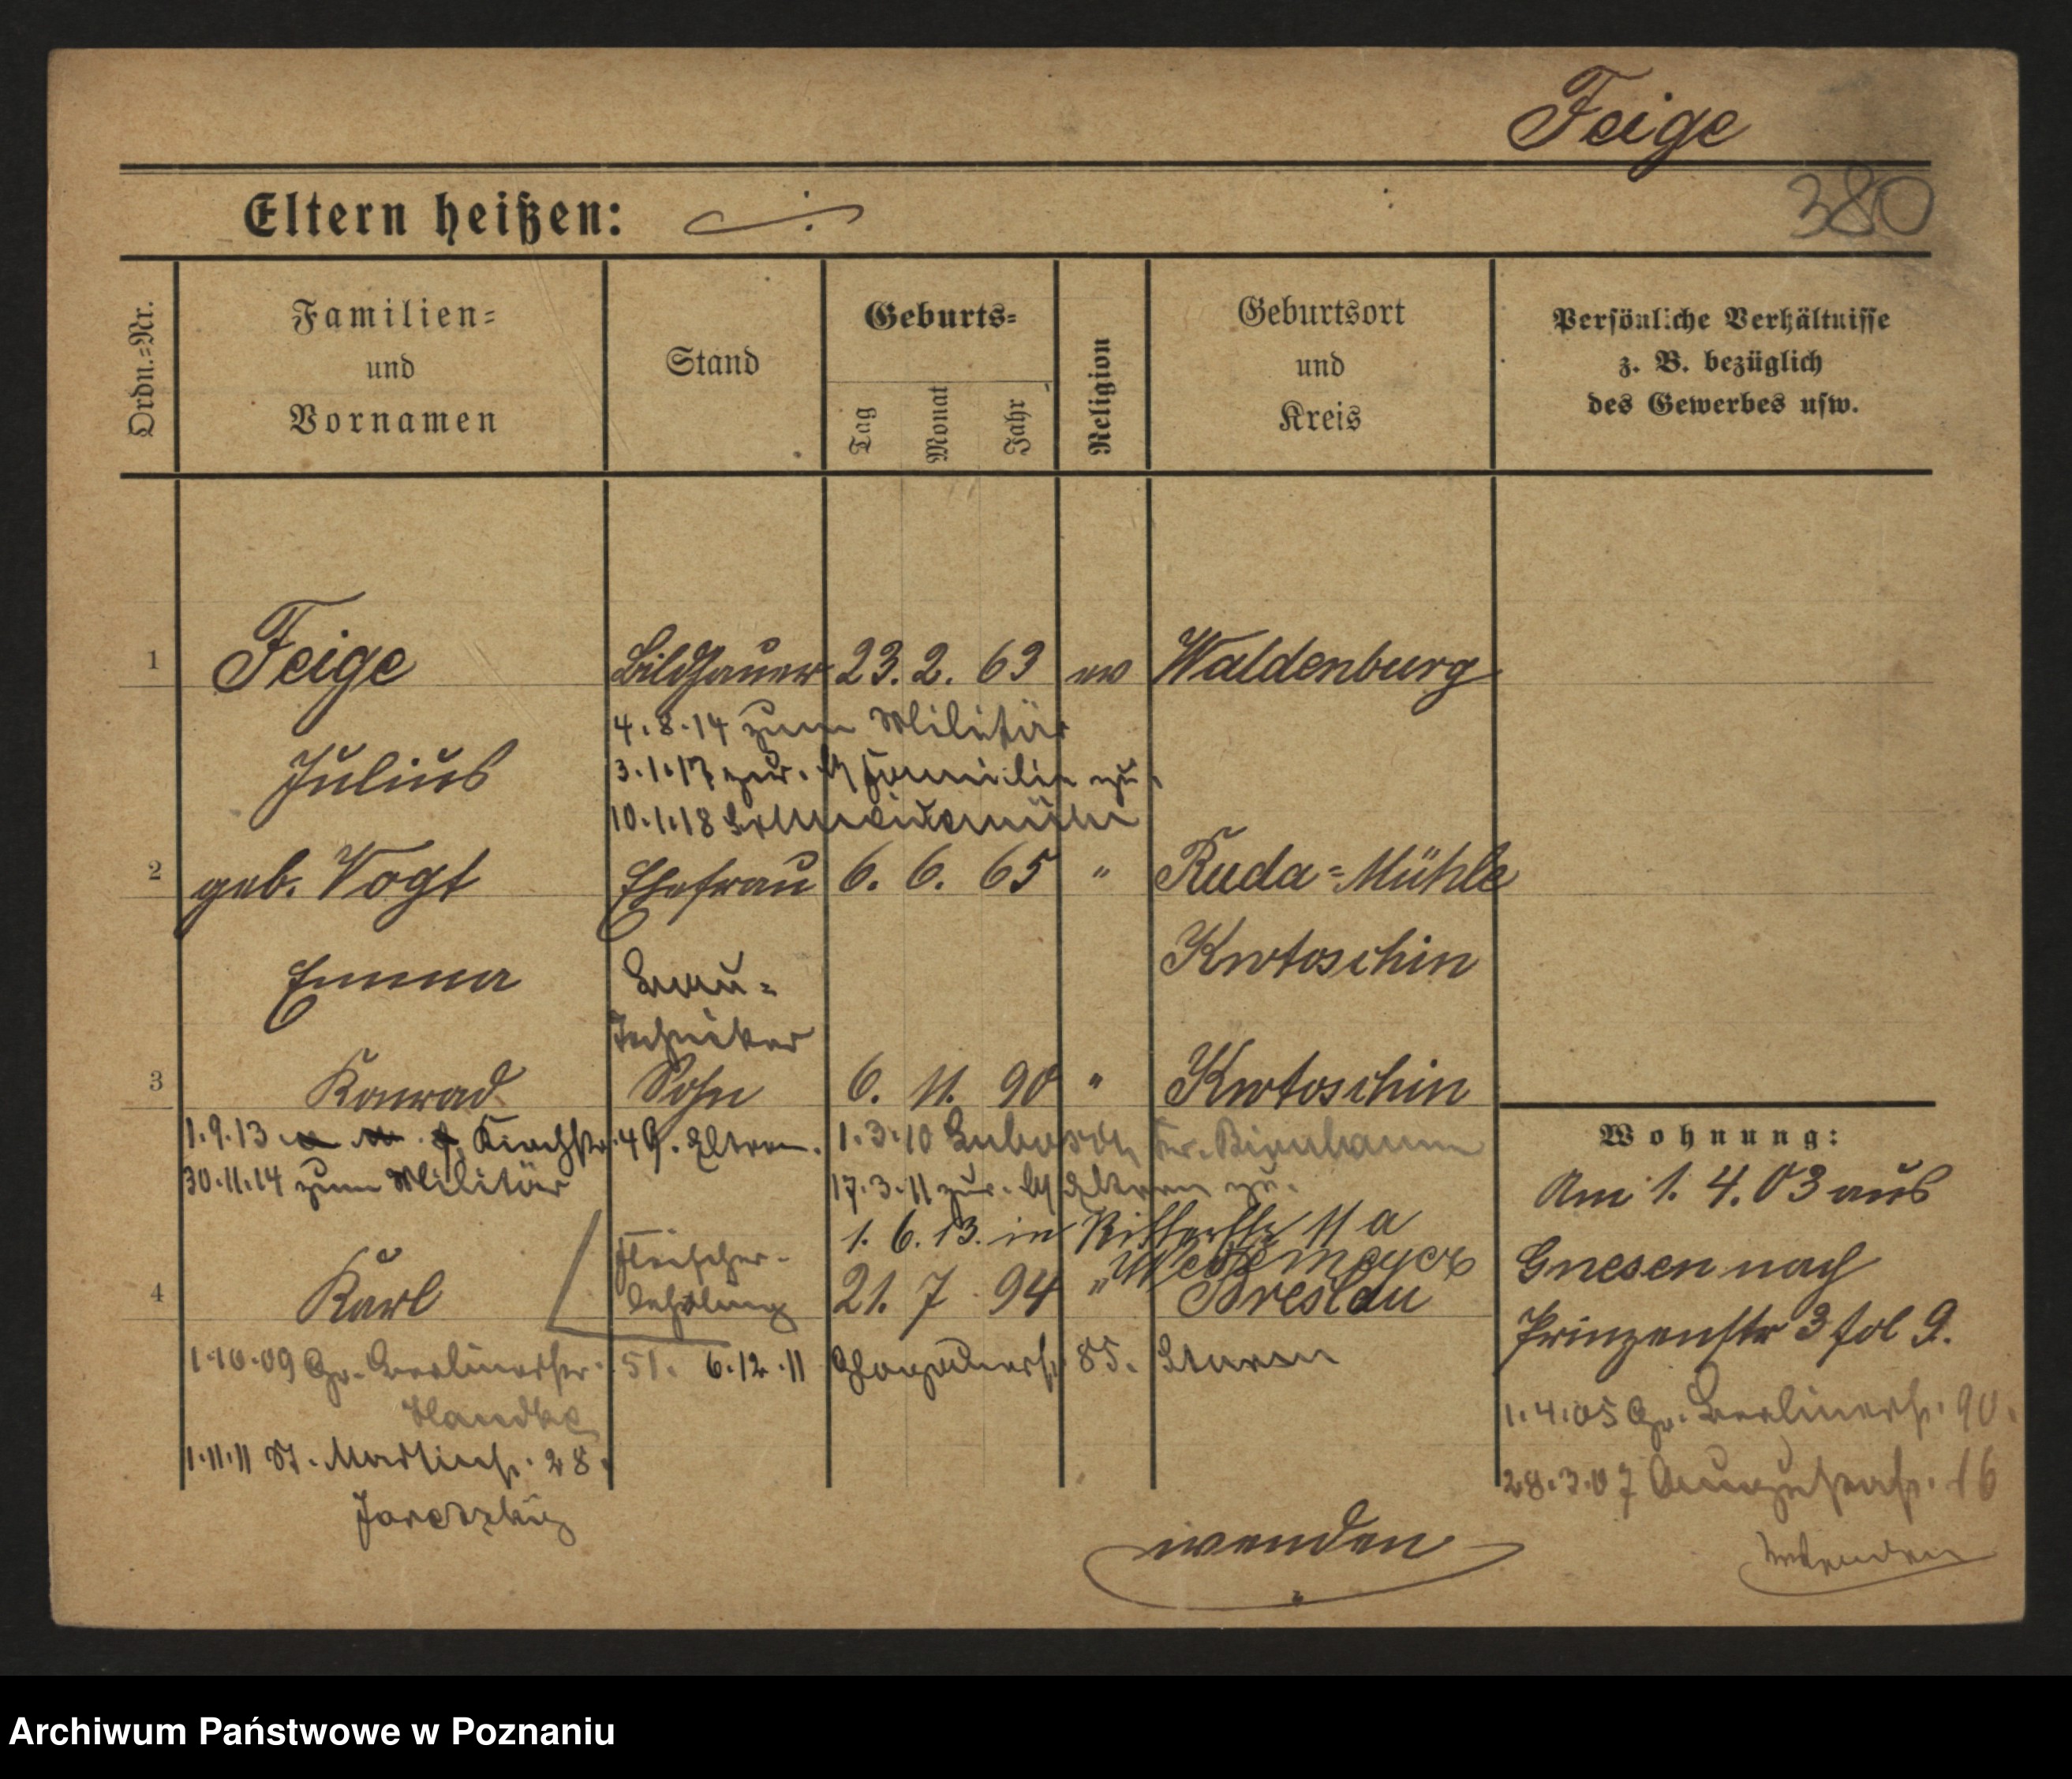 Feige
380
Eltern heißen:
Ordn.=Nr.
Familien=
und
Vornamen
Stand
Geburts=
Tag
Monat
Jahr
Religion
Geburtsort
und
Kreis
Persönliche Verhältnisse
z. B. bezüglich
des Gewerbes usw.
1 Feige Bildhauer 23. 2. 63 ev Waldenburg
4.8.14 zum Militär
Julius
3.1.17 zur. Familie zu.
10.1.18 Schneidemühl
2 geb. Vogt Ehefrau 6. 6. 65 " Ruda=Mühle
Krotoschin
Emma
Bau=
Techniker
3 Konrad Sohn 6. 11. 90 " Krotoschin
1.9.13 Kirchstr. 49. Eltern. 1.3.10 Lubosch Kr. Birnbaum
30.11.14 zum Militär 17.3.11 zur. Eltern zu.
1. 6. 13. in Ritterstr 11 a
Westemeyer
Fleischer-
lehrling
4 Karl 21. 7 94 " Breslau
1.10.09 Gr. Berlinerstr. 51. 6.12.11 Glogauerstr. 85. Sturm
Handke
1.11.11 St. Martinstr. 28.
Jaretzky
Wohnung:
Am 1. 4. 03 aus
Gnesen nach
Prinzenstr 3 fol 9.
1.4.05 Gr. Berlinerstr. 90.
28.3.07 Augustastr. 16
wenden
wenden
Archiwum Państwowe w Poznaniu